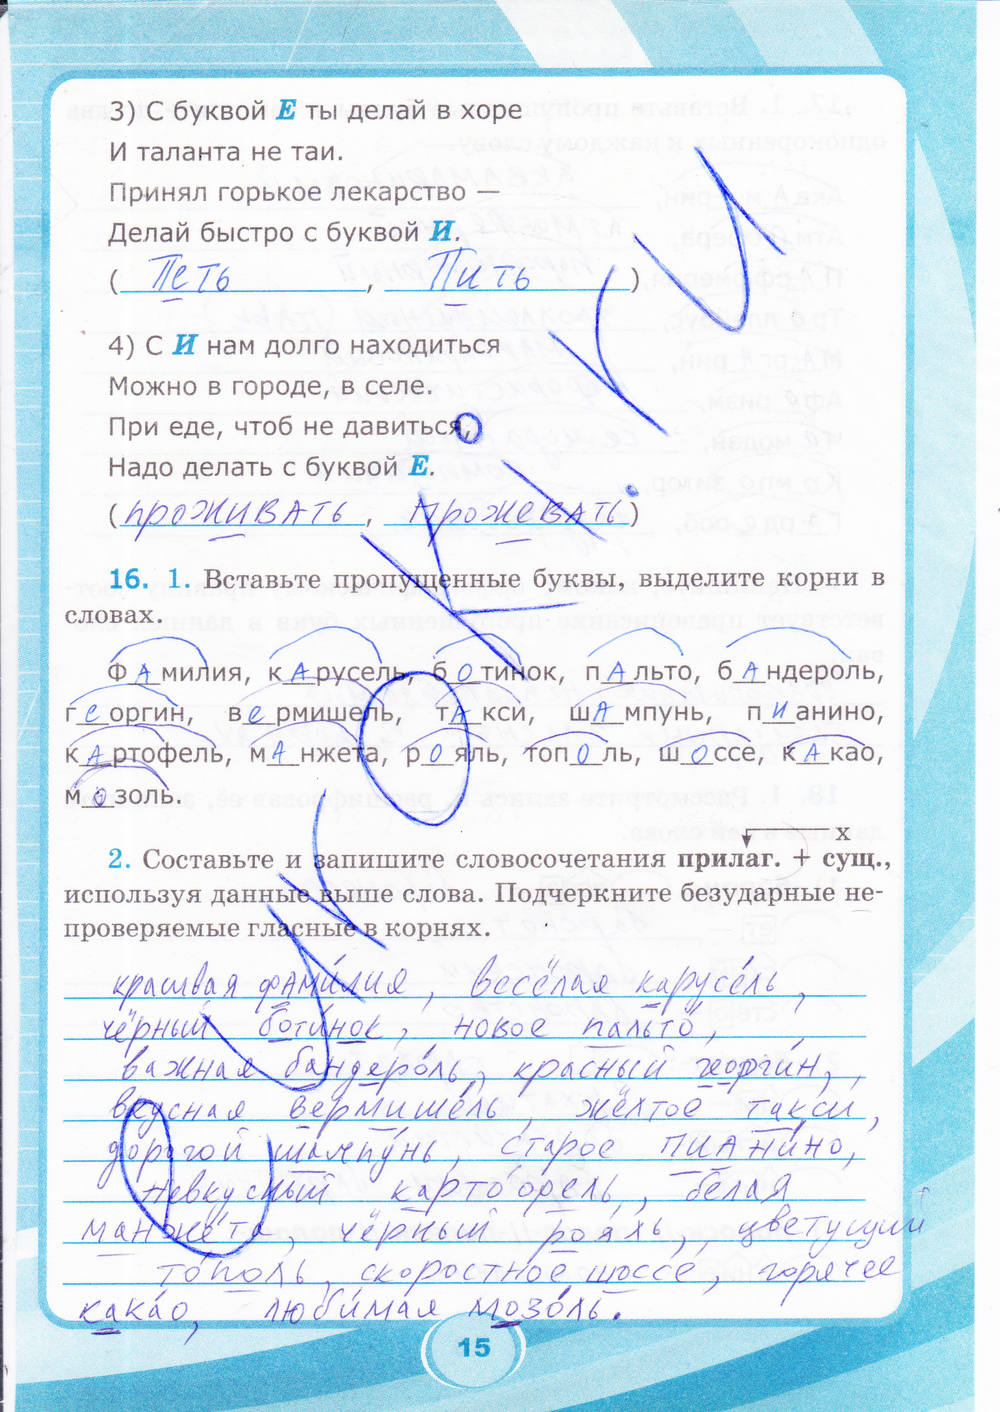 3) С буквой Е ты делай в хоре
И таланта не таи.
Принял горькое лекарство —
Делай быстро с буквой И.
( Петь , Пить )
4) С И нам долго находиться
Можно в городе, в селе.
При еде, чтоб не давиться,
Надо делать с буквой Е.
( проживать , прожевать )
16. 1. Вставьте пропущенные буквы, выделите корни в
словах.
ФАмилия, кАрусель, бОтинок, пАльто, бАндероль,
георгин, вермишель, тАкси, шАмпунь, пИанино,
кАртофель, мАнжета, рОяль, топОль, шОссе, кАкао,
мОзоль.
х
2. Составьте и запишите словосочетания прилаг. + сущ.,
используя данные выше слова. Подчеркните безударные не-
проверяемые гласные в корнях.
красивая фами́лия, весёлая карусе́ль,
чёрный боти́нок, новое пальто́,
важная бандеро́ль, красный георги́н,
вкусная вермише́ль, жёлтое такси́,
дорогой шампу́нь, старое пиани́но,
невкусный карто́фель, белая
манже́та, чёрный роя́ль, цветущий
то́поль, скоростное шоссе́, горячее
кака́о, люби́мая мозо́ль.
уроки.ки
15